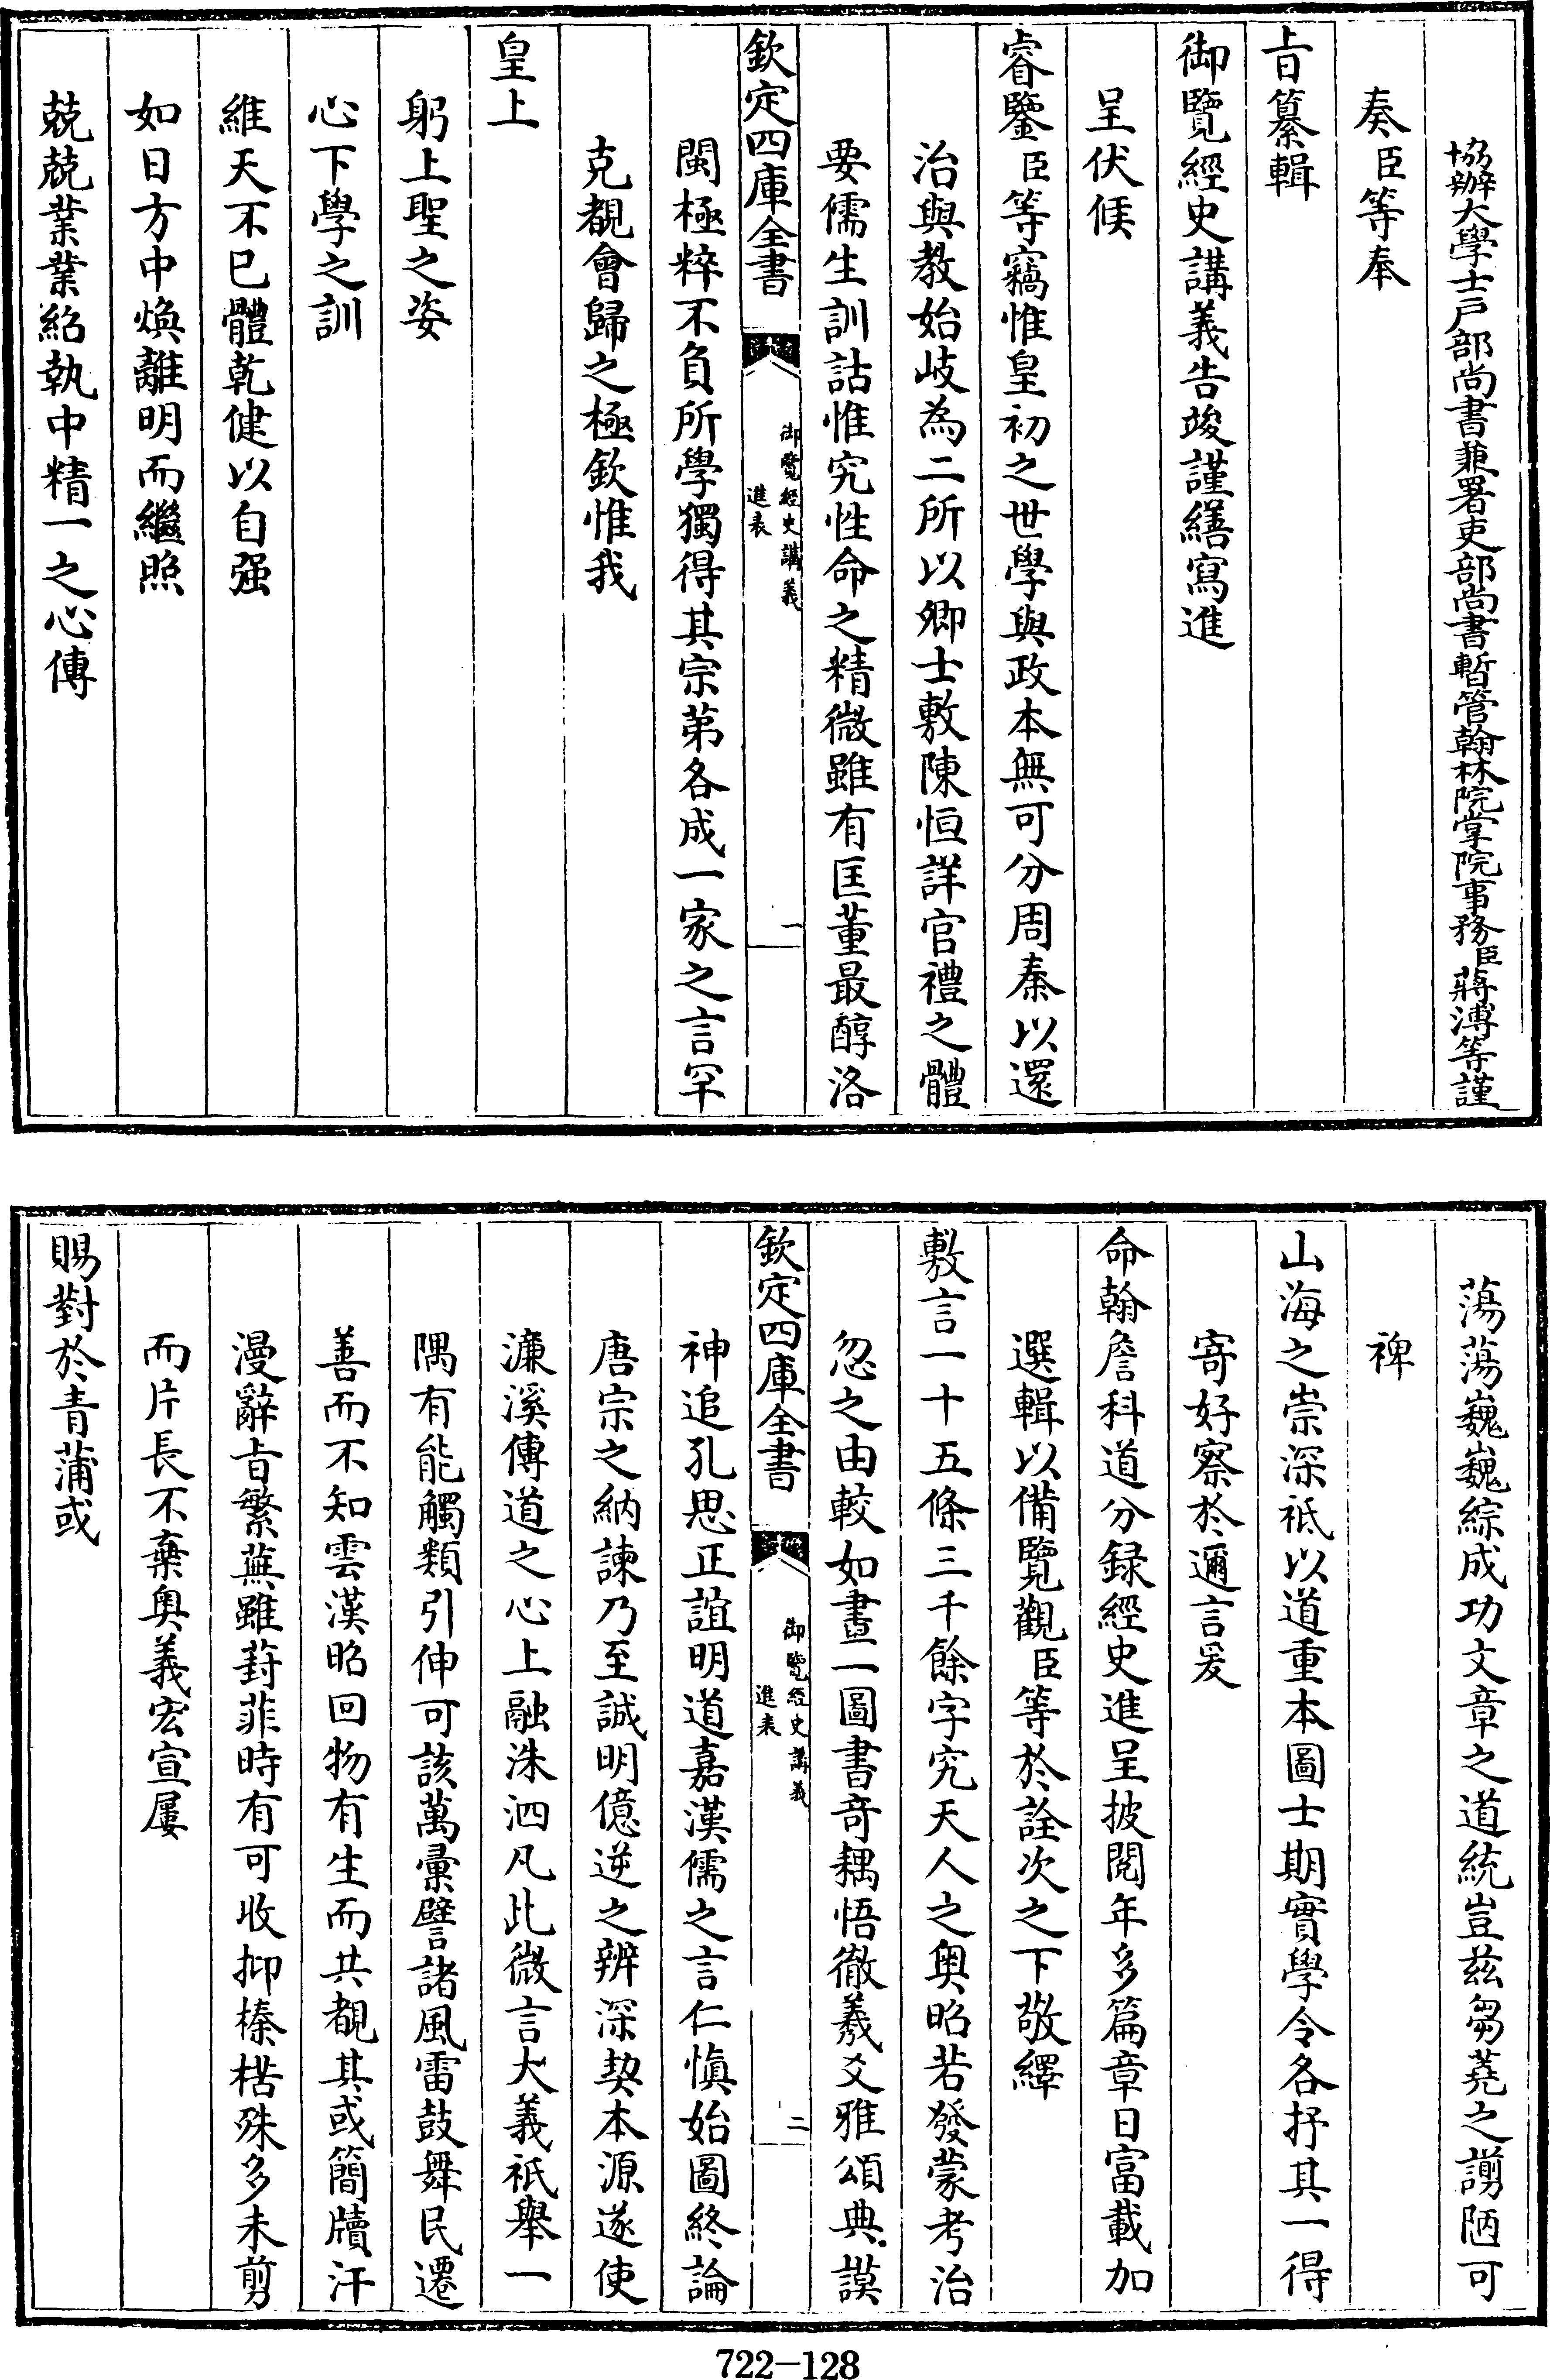 協辦大學士戶部尚書兼署吏部尚書暫管翰林院掌院事務臣蔣溥等謹
奏臣等奉
㫖纂輯
御覽經史講義告竣謹繕寫進
呈伏候
睿鑒臣等竊惟皇初之世學與政本無可分周秦以還
治與教始歧為二所以卿士敷陳恒詳官禮之體
要儒生訓詁惟究性命之精微雖有匡董最醇洛
欽定四庫全書
御覽經史講義
進表
一
閩極粹不負所學獨得其宗第各成一家之言罕
克覩會歸之極欽惟我
皇上
躬上聖之姿
心下學之訓
維天不已體乾健以自强
如日方中煥離明而繼照
兢兢業業紹執中精一之心傳
蕩蕩巍巍綜成功文章之道統豈兹芻蕘之謭陋可
裨
山海之崇深祗以道重本圖士期實學令各抒其一得
寄好察於邇言爰
命翰詹科道分録經史進呈披閱年多篇章日富載加
選輯以備覽觀臣等於詮次之下敬繹
敷言一十五條三千餘字究天人之奥昭若發蒙考治
忽之由較如畫一圖書竒耦悟徹羲爻雅頌典謨
欽定四庫全書
御覽經史講義
進表
二
神追孔思正誼明道嘉漢儒之言仁慎始圖終論
唐宗之納諫乃至誠明億逆之辨深契本源遂使
濂溪傳道之心上融洙泗凡此微言大義祇舉一
隅有能觸類引伸可該萬彙譬諸風雷鼓舞民遷
善而不知雲漢昭回物有生而共覩其或簡牘汗
漫辭㫖繁蕪雖葑菲時有可收抑榛楛殊多未剪
而片長不棄奥義宏宣屢
賜對於青蒲或
722-128